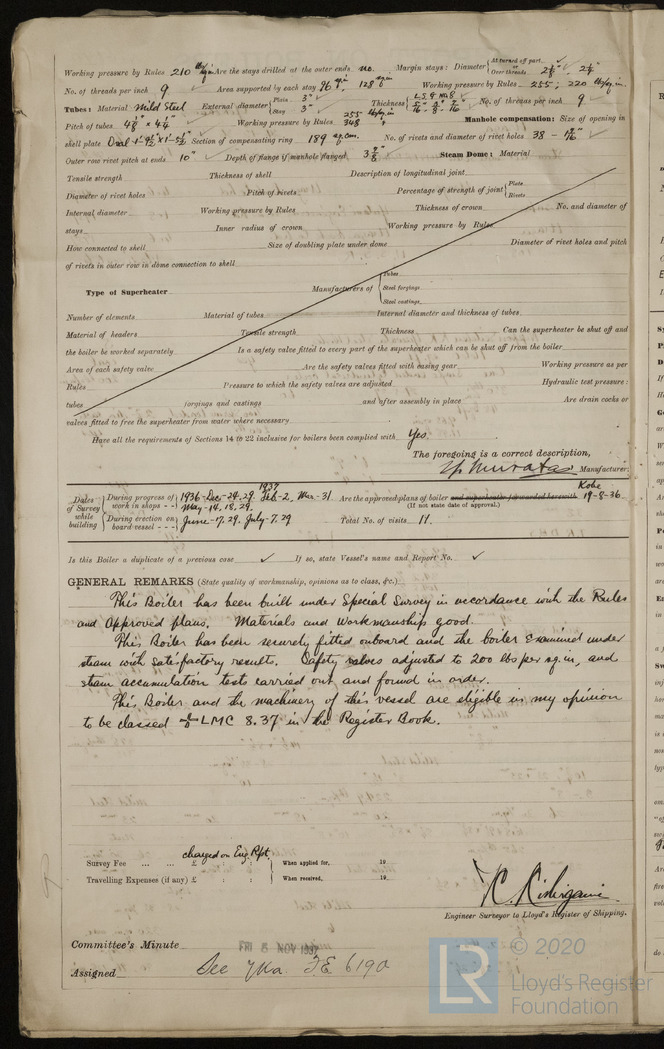 Working pressure by Rules 210 lb/sq.in Are the stays drilled at the outer ends no. Margin stays : Diameter { At turned off part, or Over threads 2⅛", 2¼"
No. of threads per inch 9 Area supported by each stay 96 sq.in, 128 sq.in Working pressure by Rules 255, 220 lbs/sq.in.
Tubes : Material Mild Steel External diameter { Plain 3" Stay 3" Thickness { L.S.G. No 8 5/16" 3/8" 7/16" No. of threads per inch 9
Pitch of tubes 4⅛" x 4¼" Working pressure by Rules 255 lb/sq.in 348 " Manhole compensation: Size of opening in
shell plate Oval Section of compensating ring 189 sq.cm. No. of rivets and diameter of rivet holes 38 -
Outer row rivet pitch at ends 10" Depth of flange if manhole flanged Steam Dome : Material
Tensile strength Thickness of shell Description of longitudinal joint
Diameter of rivet holes Pitch of rivets Percentage of strength of joint { Plate Rivets
Internal diameter Working pressure by Rules Thickness of crown No. and diameter of
stays Inner radius of crown Working pressure by Rules
How connected to shell Size of doubling plate under dome Diameter of rivet holes and pitch
of rivets in outer row in dome connection to shell
Type of Superheater Manufacturers of { Tubes Steel forgings Steel castings
Number of elements Material of tubes Internal diameter and thickness of tubes
Material of headers Tensile strength Thickness Can the superheater be shut off and
the boiler be worked separately Is a safety valve fitted to every part of the superheater which can be shut off from the boiler
Area of each safety valve Are the safety valves fitted with easing gear Working pressure as per
Rules Pressure to which the safety valves are adjusted Hydraulic test pressure :
tubes forgings and castings and after assembly in place Are drain cocks or
valves fitted to free the superheater from water where necessary
Have all the requirements of Sections 14 to 22 inclusive for boilers been complied with Yes.
The foregoing is a correct description,
Y. Murata Manufacturer.
Dates of Survey while building { During progress of work in shops - - 1936-Dec-24.29. 1937 Feb-2, Mar-31. May-14,18,29. Are the approved plans of boiler and superheater forwarded herewith Kobe 19-8-36
(If not state date of approval.)
During erection on board vessel - - - June-17.29. July-7.29 Total No. of visits 11.
Is this Boiler a duplicate of a previous case ✓ If so, state Vessel's name and Report No. ✓
GENERAL REMARKS (State quality of workmanship, opinions as to class, &c.)
This Boiler has been built under Special Survey in accordance with the Rules
and Approved plans. Materials and Workmanship good.
This Boiler has been securely fitted onboard and the boiler examined under
steam with satisfactory results. Safety valves adjusted to 200 lbs per sq.in, and
steam accumulation tests carried out and found in order.
This Boiler and the machinery of this vessel are eligible in my opinion
to be classed LMC 8.37 in the Register Book.
Survey Fee ... ... £ charged on Eng Rpt. : : When applied for, 19
Travelling Expenses (if any) £ : : When received, 19
Engineer Surveyor to Lloyd's Register of Shipping.
Committee's Minute FRI 5 NOV 1937
Assigned See Yka. F.E. 6190
LR © 2020
Lloyd's Register
Foundation